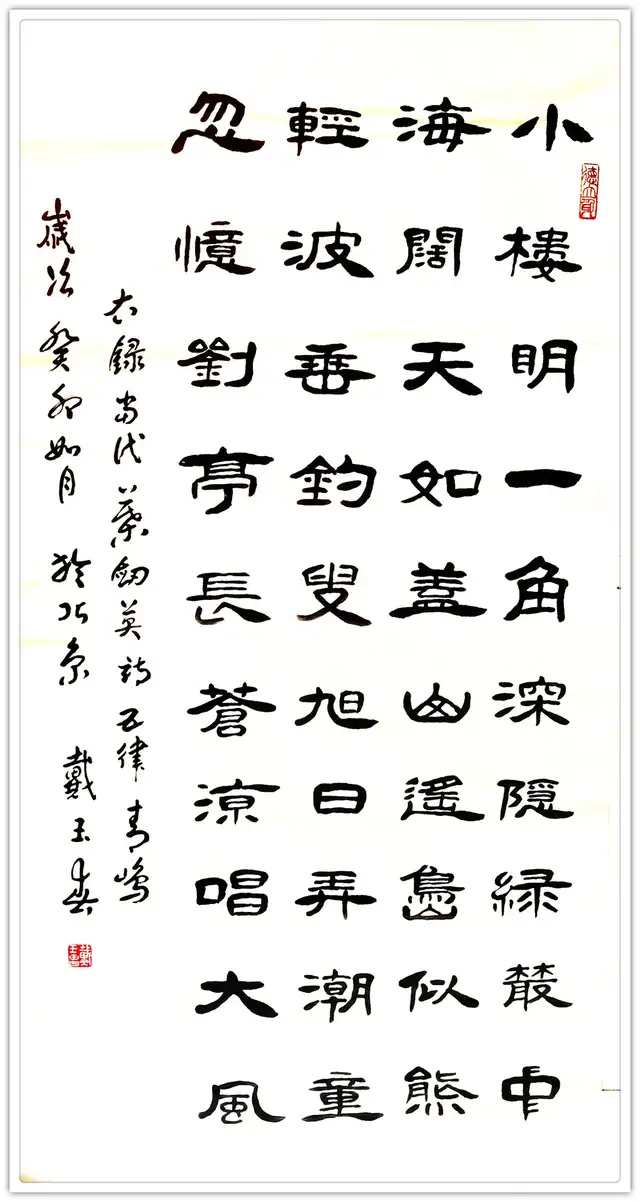 小樓明一角深隱緑叢中
海闊天如蓋山遙島似熊
輕波垂釣叟旭日弄潮童
忽憶劉亭長蒼涼唱大風
右録当代葉劍英詩五律青島
歲次癸卯如月於北京 戴玉春